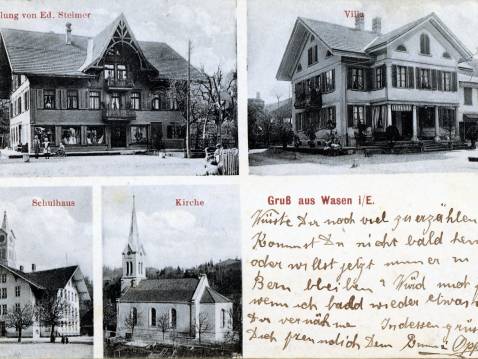 lung von Ed. Steimer
Villa
Schulhaus
Kirche
Gruß aus Wasen i/E.
Wüsste Dir noch viel zu erzählen
Kommst Du nicht bald
oder willst jetzt immer in
Bern bleiben? Würd mich
wenn ich bald wieder etwas
Dir vernähme Indessen grüsst
Dich freundlich Dein